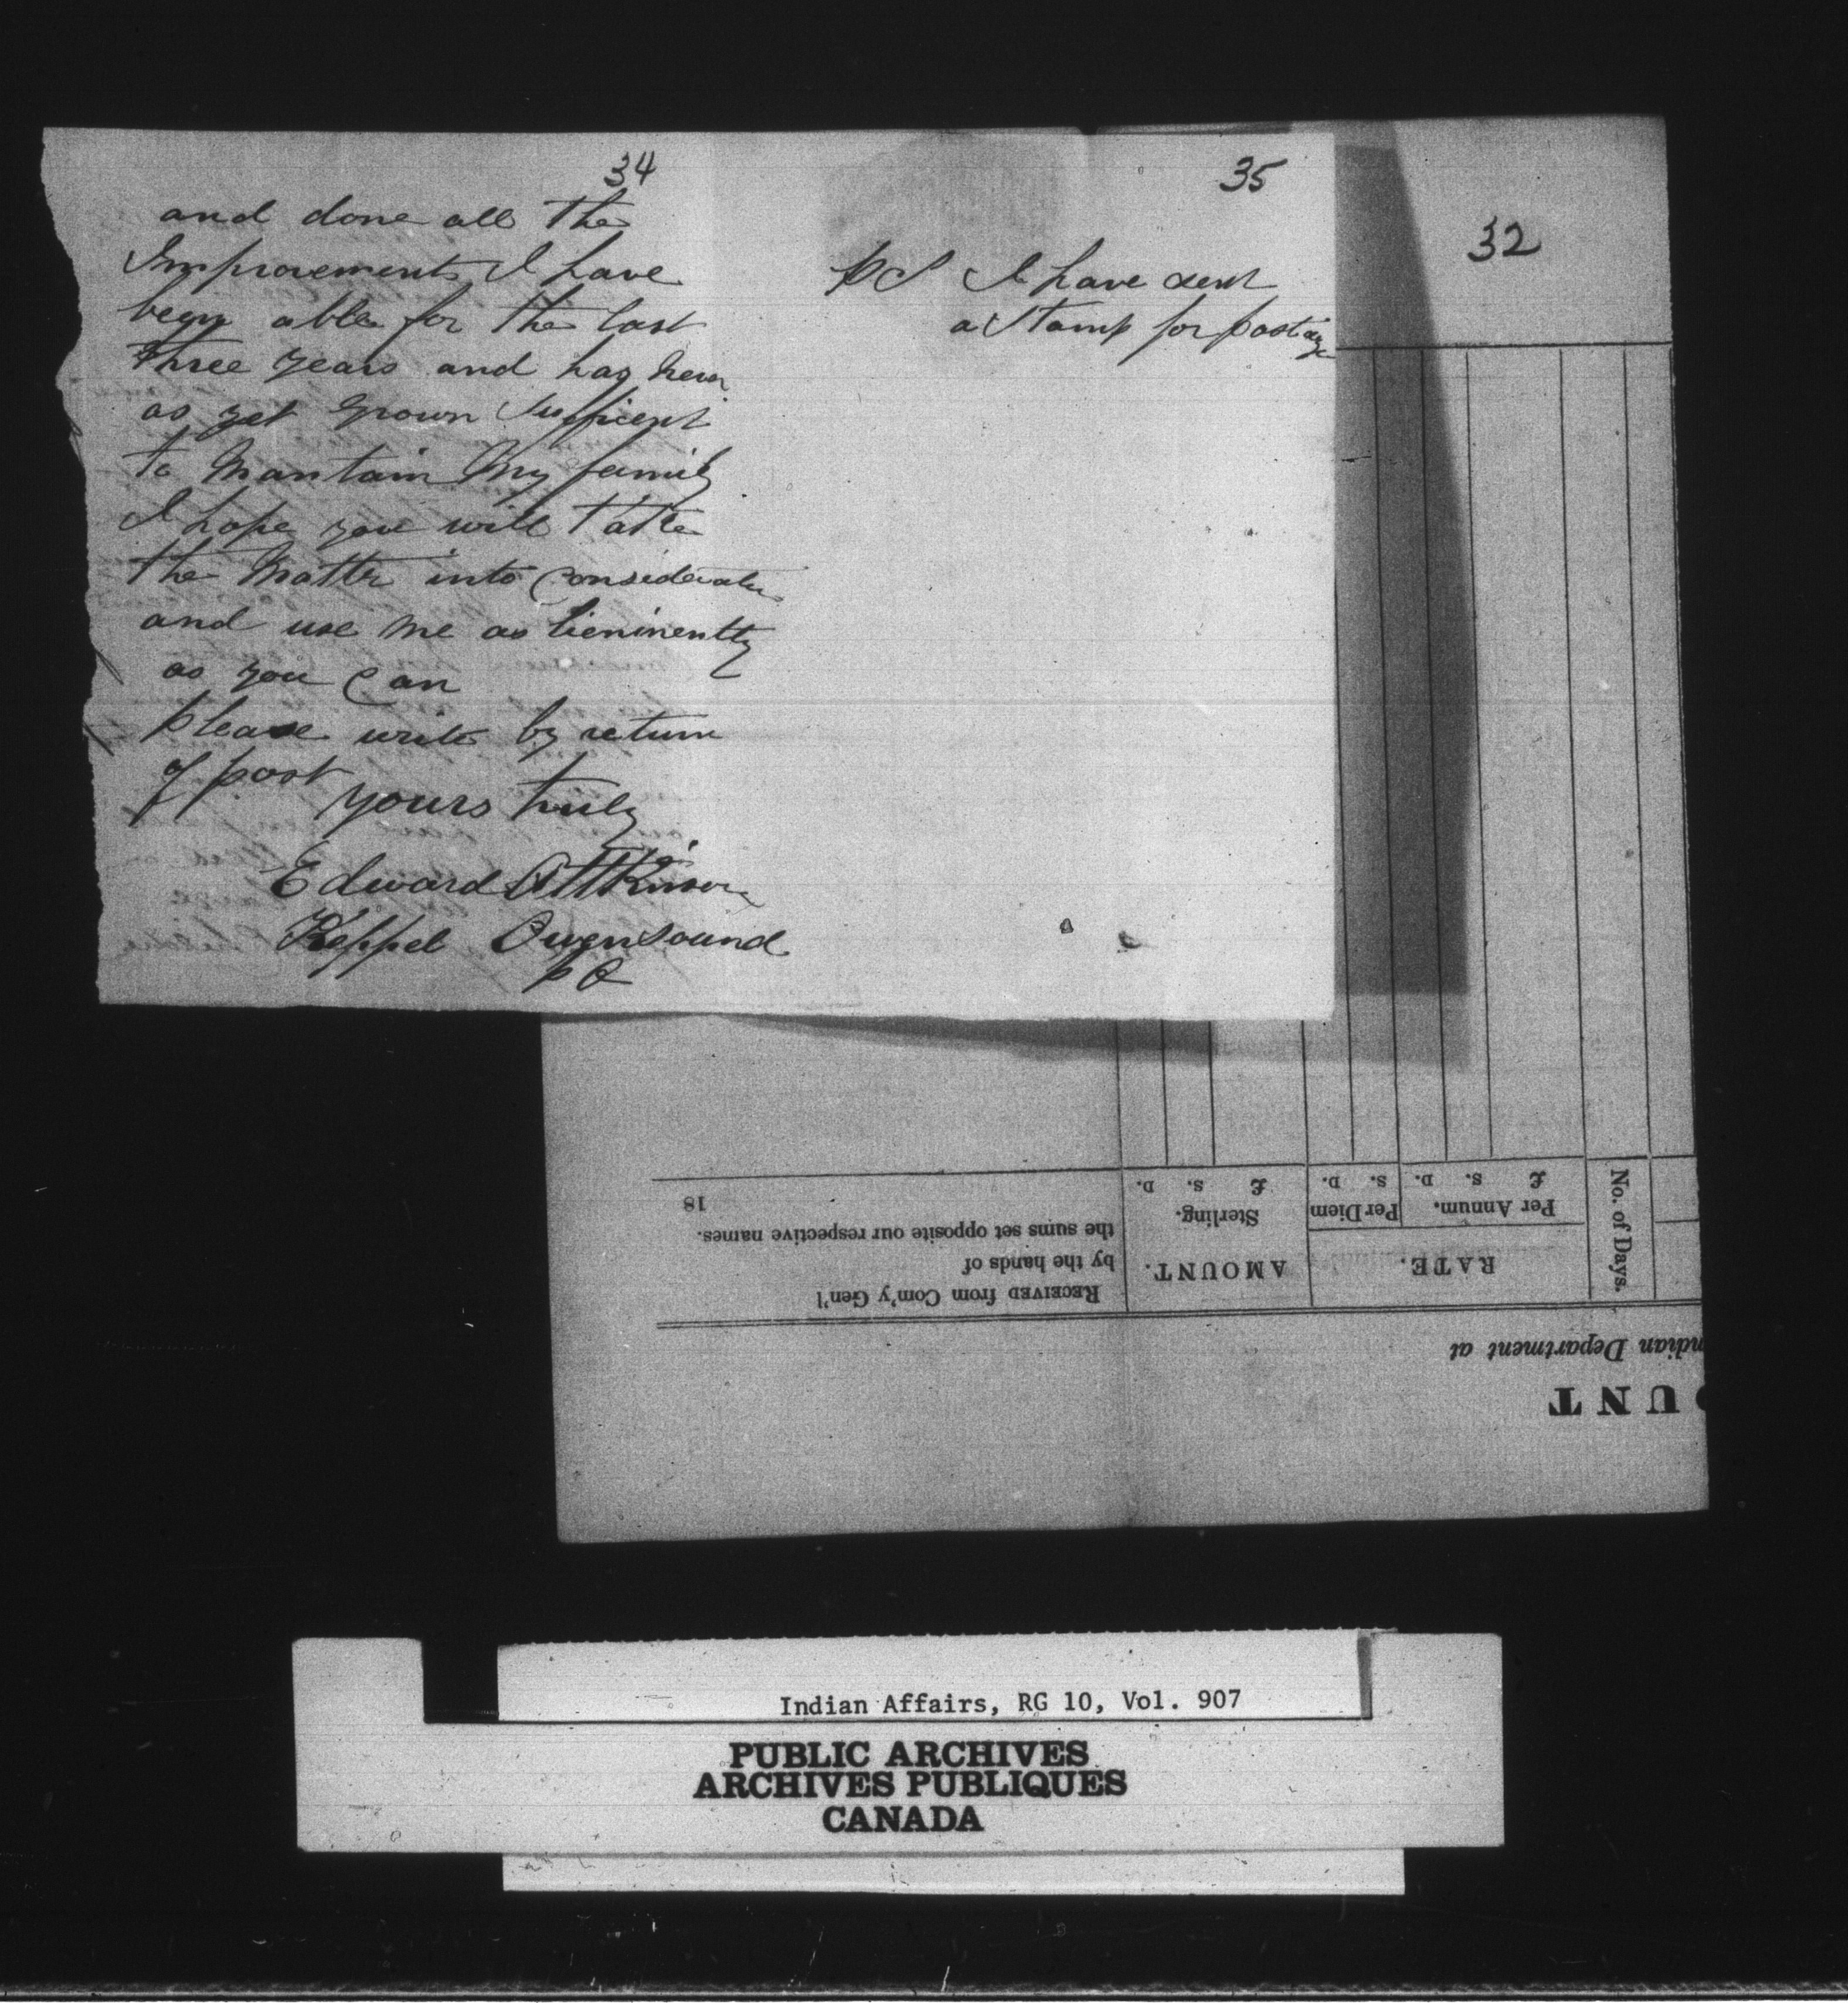 34
and done all the
Improvements I have
begin able for the last
three years and has never
as yet grown Sufficent
to Mantain My family
I hope you will take
the Matter into Consideration
and use me as lieninently
as you Can
please write by return
of post
yours truly
Edward Attkinson
Keppel Owensound
P O
35
PS I have sent
a Stamp for postage
32
UNT
ndian Department at
No. of Days.
RATE.
Per Annum.
Per Diem
£ S. D.
S. D.
AMOUNT.
Sterling.
£ S. D.
RECEIVED from Com'y Gen'l
by the hands of
the sums set opposite our respective names.
18
Indian Affairs, RG 10, Vol. 907
PUBLIC ARCHIVES
ARCHIVES PUBLIQUES
CANADA